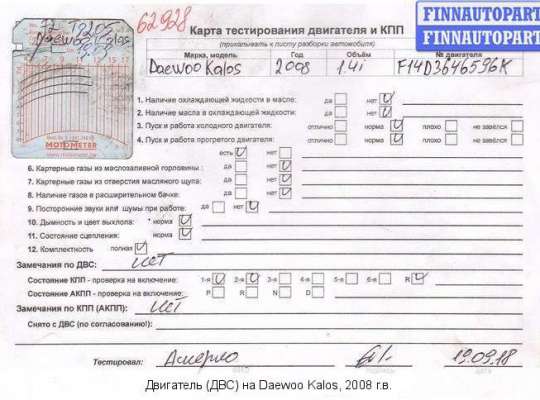 62928
Карта тестирования двигателя и КПП
(прикалывать к листу разборки автомобиля)
FINNAUTOPART
FINNAUTOPART
Daewoo Kalos
MOTOMETER
Марка, модель Год Объём № двигателя
Daewoo Kalos 2008 1.4i F14D3646596K
1. Наличие охлаждающей жидкости в масле: да нет
2. Наличие масла в охлаждающей жидкости: да нет
3. Пуск и работа холодного двигателя: отлично норма плохо не завёлся
4. Пуск и работа прогретого двигателя: отлично норма плохо не завёлся
есть нет
6. Картерные газы из маслозаливной горловины:
7. Картерные газы из отверстия масляного щупа: да нет
8. Наличие газов в расширительном бачке: да нет
9. Посторонние звуки или шумы при работе: да нет
10. Дымность и цвет выхлопа: норма
11. Состояние сцепления: норма
12. Комплектность полная
Замечания по ДВС: нет
Состояние КПП - проверка на включение: 1-я 2-я 3-я 4-я 5-я 6-я R
Состояние АКПП - проверка на включение: P R N D
Замечания по КПП (АКПП): нет
Снято с ДВС (по согласованию!):
Тестировал: 19.09.18
Двигатель (ДВС) на Daewoo Kalos, 2008 г.в.